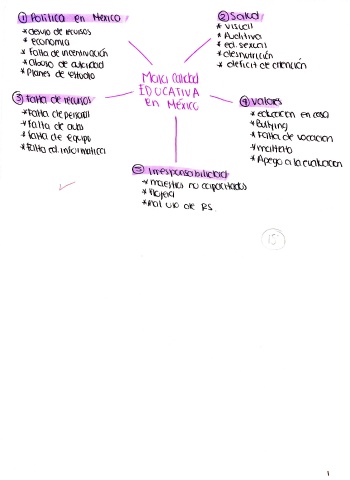 ① Politica en Mexico
* desvio de recursos
* economia
* Falta de incentivación
* Abuso de autoridad
* Planes de estudio
② Salud
* visual
* Auditiva
* ed. sexual
* desnutrición
* deficit de atención
Mala calidad
EDUCATIVA
en México
③ Falta de recursos
* Falta de personal
* Falta de aula
* Falta de equipo
* Falta ed. informatica
④ Valores
* educacion en casa
* Bullying
* Falta de vocacion
* maltrato
* Apego a la evaluacion
⑤ Irresponsabilidad
* maestros no capacitados
* Flojera
* mal uso de RS.
15
1